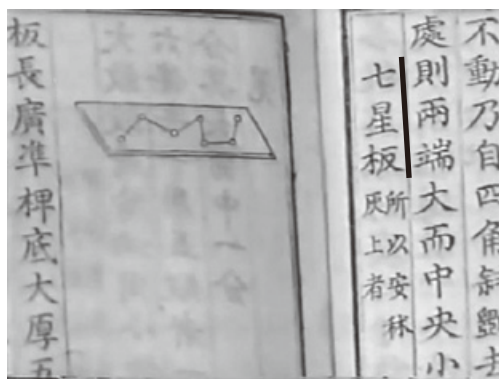 不動乃自四角斜斲去
處則兩端大而中央小
七星板
所以安秫
灰上者
板長廣準椑底大厚五